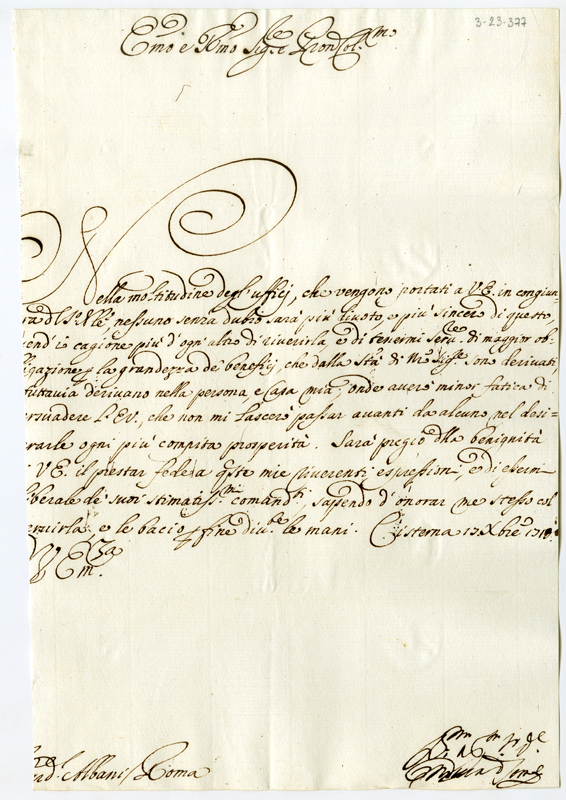 3-23-377
Emo e Rmo Sig.re Pron Col.mo
Nella moltitudine degl'uffizj, che vengono portati a V.E. in congiun
nessuno senza dubio sarà più divoto e più sincero di questo
io cagione più d'ogn'altro di riverirla, e di tenermi serv.re di maggior ob-
ligazione p la grandezza de benefizj, che dalla di sono derivati,
tuttavia derivano nella persona, e Casa mia; onde averò minor fatica di
ersuadere l'E.V., che non mi lascerò passar avanti da alcuno nel desi=
rarle ogni più compita prosperità. Sarà pregio della benignità
V.E. il prestar fede a q'ste mie riverenti espressioni, e di
iberale de suoi stimatiss.mi comandi, sapendo d'onorar me stesso col
ervirla; e le bacio p fine le mani. Cisterna 17 Xbre
V Em.za
Albani / Roma